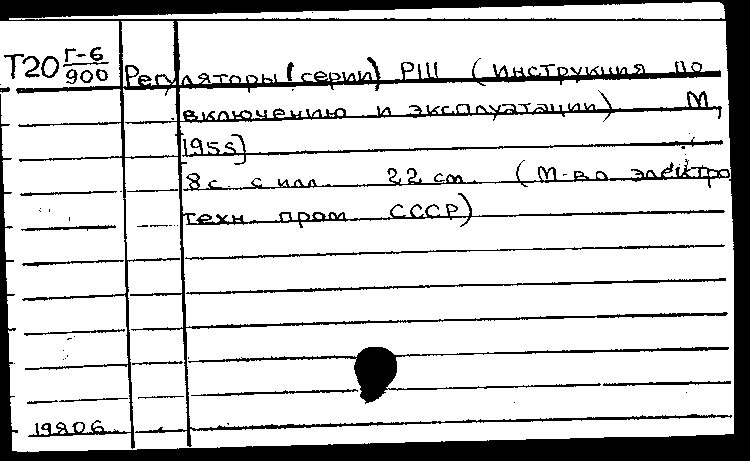 Т20 Г-6/900
Регуляторы (серии) РШ (Инструкция по
включению и эксплуатации) М,
1955]
8 с. с илл. 22 см. (М-во электро
техн. пром. СССР)
19806